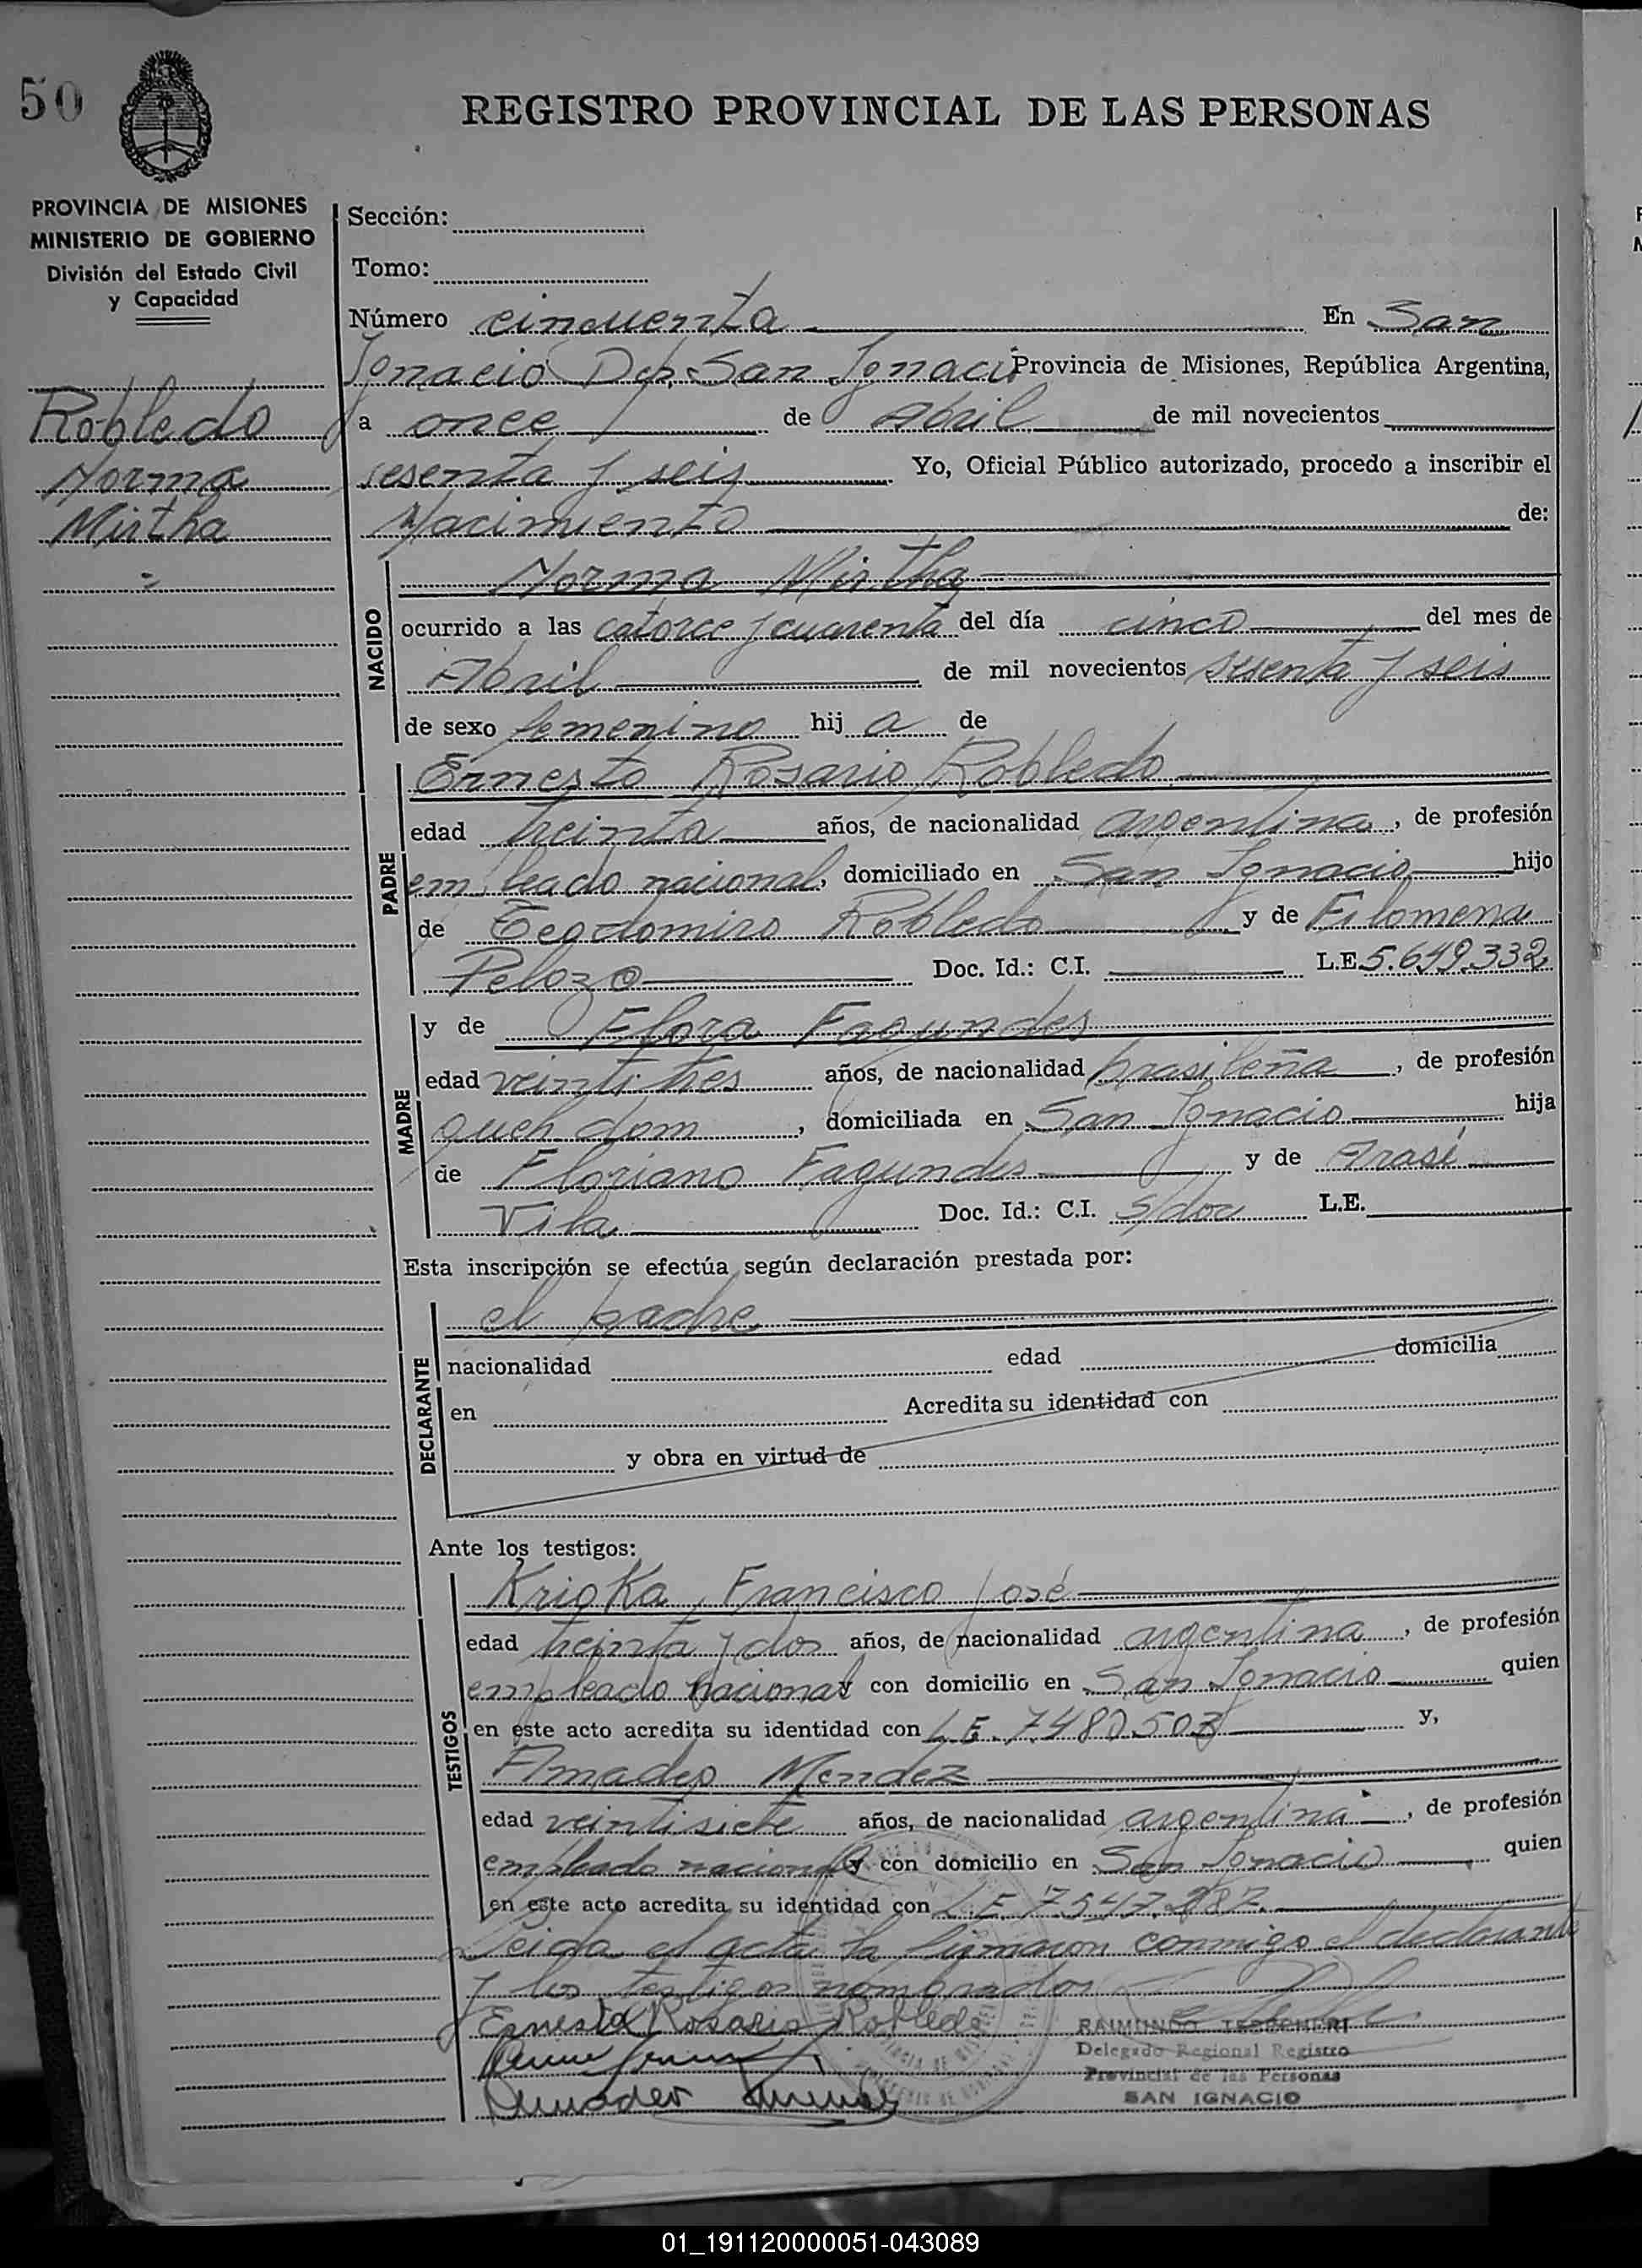 50
REGISTRO PROVINCIAL DE LAS PERSONAS
PROVINCIA DE MISIONES
MINISTERIO DE GOBIERNO
División del Estado Civil
y Capacidad
Robledo
Norma
Mirtha
Sección:
Tomo:
Número cincuenta En San
Ignacio Dep. San Ignacio Provincia de Misiones, República Argentina,
a once de Abril de mil novecientos
sesenta y seis Yo, Oficial Público autorizado, procedo a inscribir el
Nacimiento de:
NACIDO
Norma Mirtha
ocurrido a las catorce y cuarenta del día cinco del mes de
Abril de mil novecientos sesenta y seis
de sexo femenino hij a de
PADRE
Ernesto Rosario Robledo
edad treinta años, de nacionalidad argentina, de profesión
empleado nacional, domiciliado en San Ignacio hijo
de Teodomiro Robledo y de Filomena
Pelozo Doc. Id.: C.I. L.E. 5.659.332
MADRE
y de Flora Fagundes
edad veintitres años, de nacionalidad brasileña, de profesión
queh. dom, domiciliada en San Ignacio hija
de Floriano Fagundes y de Arasí
Vila Doc. Id.: C.I. s/doc L.E.
Esta inscripción se efectúa según declaración prestada por:
DECLARANTE
el padre
nacionalidad edad domicilia
en Acredita su identidad con
y obra en virtud de
Ante los testigos:
TESTIGOS
Krioka, Francisco José
edad treinta y dos años, de nacionalidad argentina, de profesión
empleado nacional con domicilio en San Ignacio quien
en este acto acredita su identidad con L.E. 7.480.503 y,
Amadeo Mendez
edad veintisiete años, de nacionalidad argentina, de profesión
empleado nacional y con domicilio en San Ignacio quien
en este acto acredita su identidad con L.E. 7.547.287
Leida el acta la firmaron conmigo el declarante
y los testigos nombrados
Ernesto Rosario Robledo
Amadeo
RAIMUNDO
Delegado Regional Registro
Provincial de las Personas
SAN IGNACIO
01_191120000051-043089